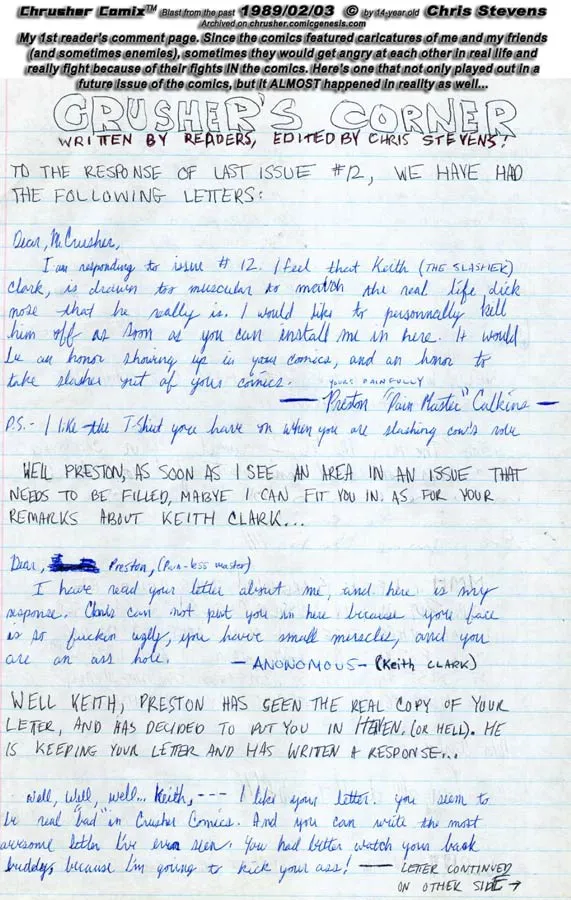 Chrusher Comix™ Blast from the past 1989/02/03 © by 14-year old Chris Stevens
Archived on chrusher.comicgenesis.com
My 1st reader's comment page. Since the comics featured caricatures of me and my friends
(and sometimes enemies), sometimes they would get angry at each other in real life and
really fight because of their fights IN the comics. Here's one that not only played out in a
future issue of the comics, but it ALMOST happened in reality as well...
CRUSHER'S CORNER
WRITTEN BY READERS, EDITED BY CHRIS STEVENS!
TO THE RESPONSE OF LAST ISSUE #12, WE HAVE HAD
THE FOLLOWING LETTERS:
Dear, Mr. Crusher,
I am responding to issue #12. I feel that Keith (THE SLASHER)
Clark, is drawn too muscular to match the real life dick
nose that he really is. I would like to personnally kill
him off as soon as you can install me in here. It would
be an honor showing up in your comics, and an honor to
take slasher out of your comics. YOURS PAINFULLY
— Preston "Pain Master" Calkins —
P.S. - I like the T-Shirt you have on when you are slashing cow's
WELL PRESTON, AS SOON AS I SEE AN AREA IN AN ISSUE THAT
NEEDS TO BE FILLED, MABYE I CAN FIT YOU IN. AS FOR YOUR
REMARKS ABOUT KEITH CLARK...
Dear, Preston, (Pain-less master)
I have read your letter about me, and here is my
response. Chris can not put you in here because your face
is so fuckin ugly, you have small muscles, and you
are an ass hole. — ANONOMOUS — (Keith CLARK)
WELL KEITH, PRESTON HAS SEEN THE REAL COPY OF YOUR
LETER, AND HAS DECIDED TO PUT YOU IN HEVEN. (OR HELL). HE
IS KEEPING YOUR LETTER AND HAS WRITEN A RESPONSE...
Well, Well, well... Keith, --- I like your letter. you seem to
be real "bad" in Crusher Comics. And you can write the most
awesome letter I've ever seen. You had better watch your back
buddy, because I'm going to kick your ass! — LETTER CONTINUED
ON OTHER SIDE →